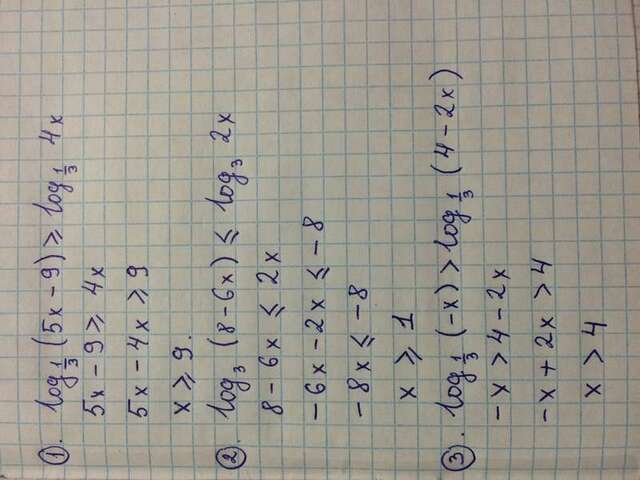 ①. log_{1/3} (5x − 9) ⩾ log_{1/3} 4x
5x − 9 ⩾ 4x
5x − 4x ⩾ 9
x ⩾ 9.
②. log_3 (8 − 6x) ⩽ log_3 2x
8 − 6x ⩽ 2x
−6x − 2x ⩽ −8
−8x ⩽ −8
x ⩾ 1
③. log_{1/3} (−x) > log_{1/3} (4 − 2x)
−x > 4 − 2x
−x + 2x > 4
x > 4